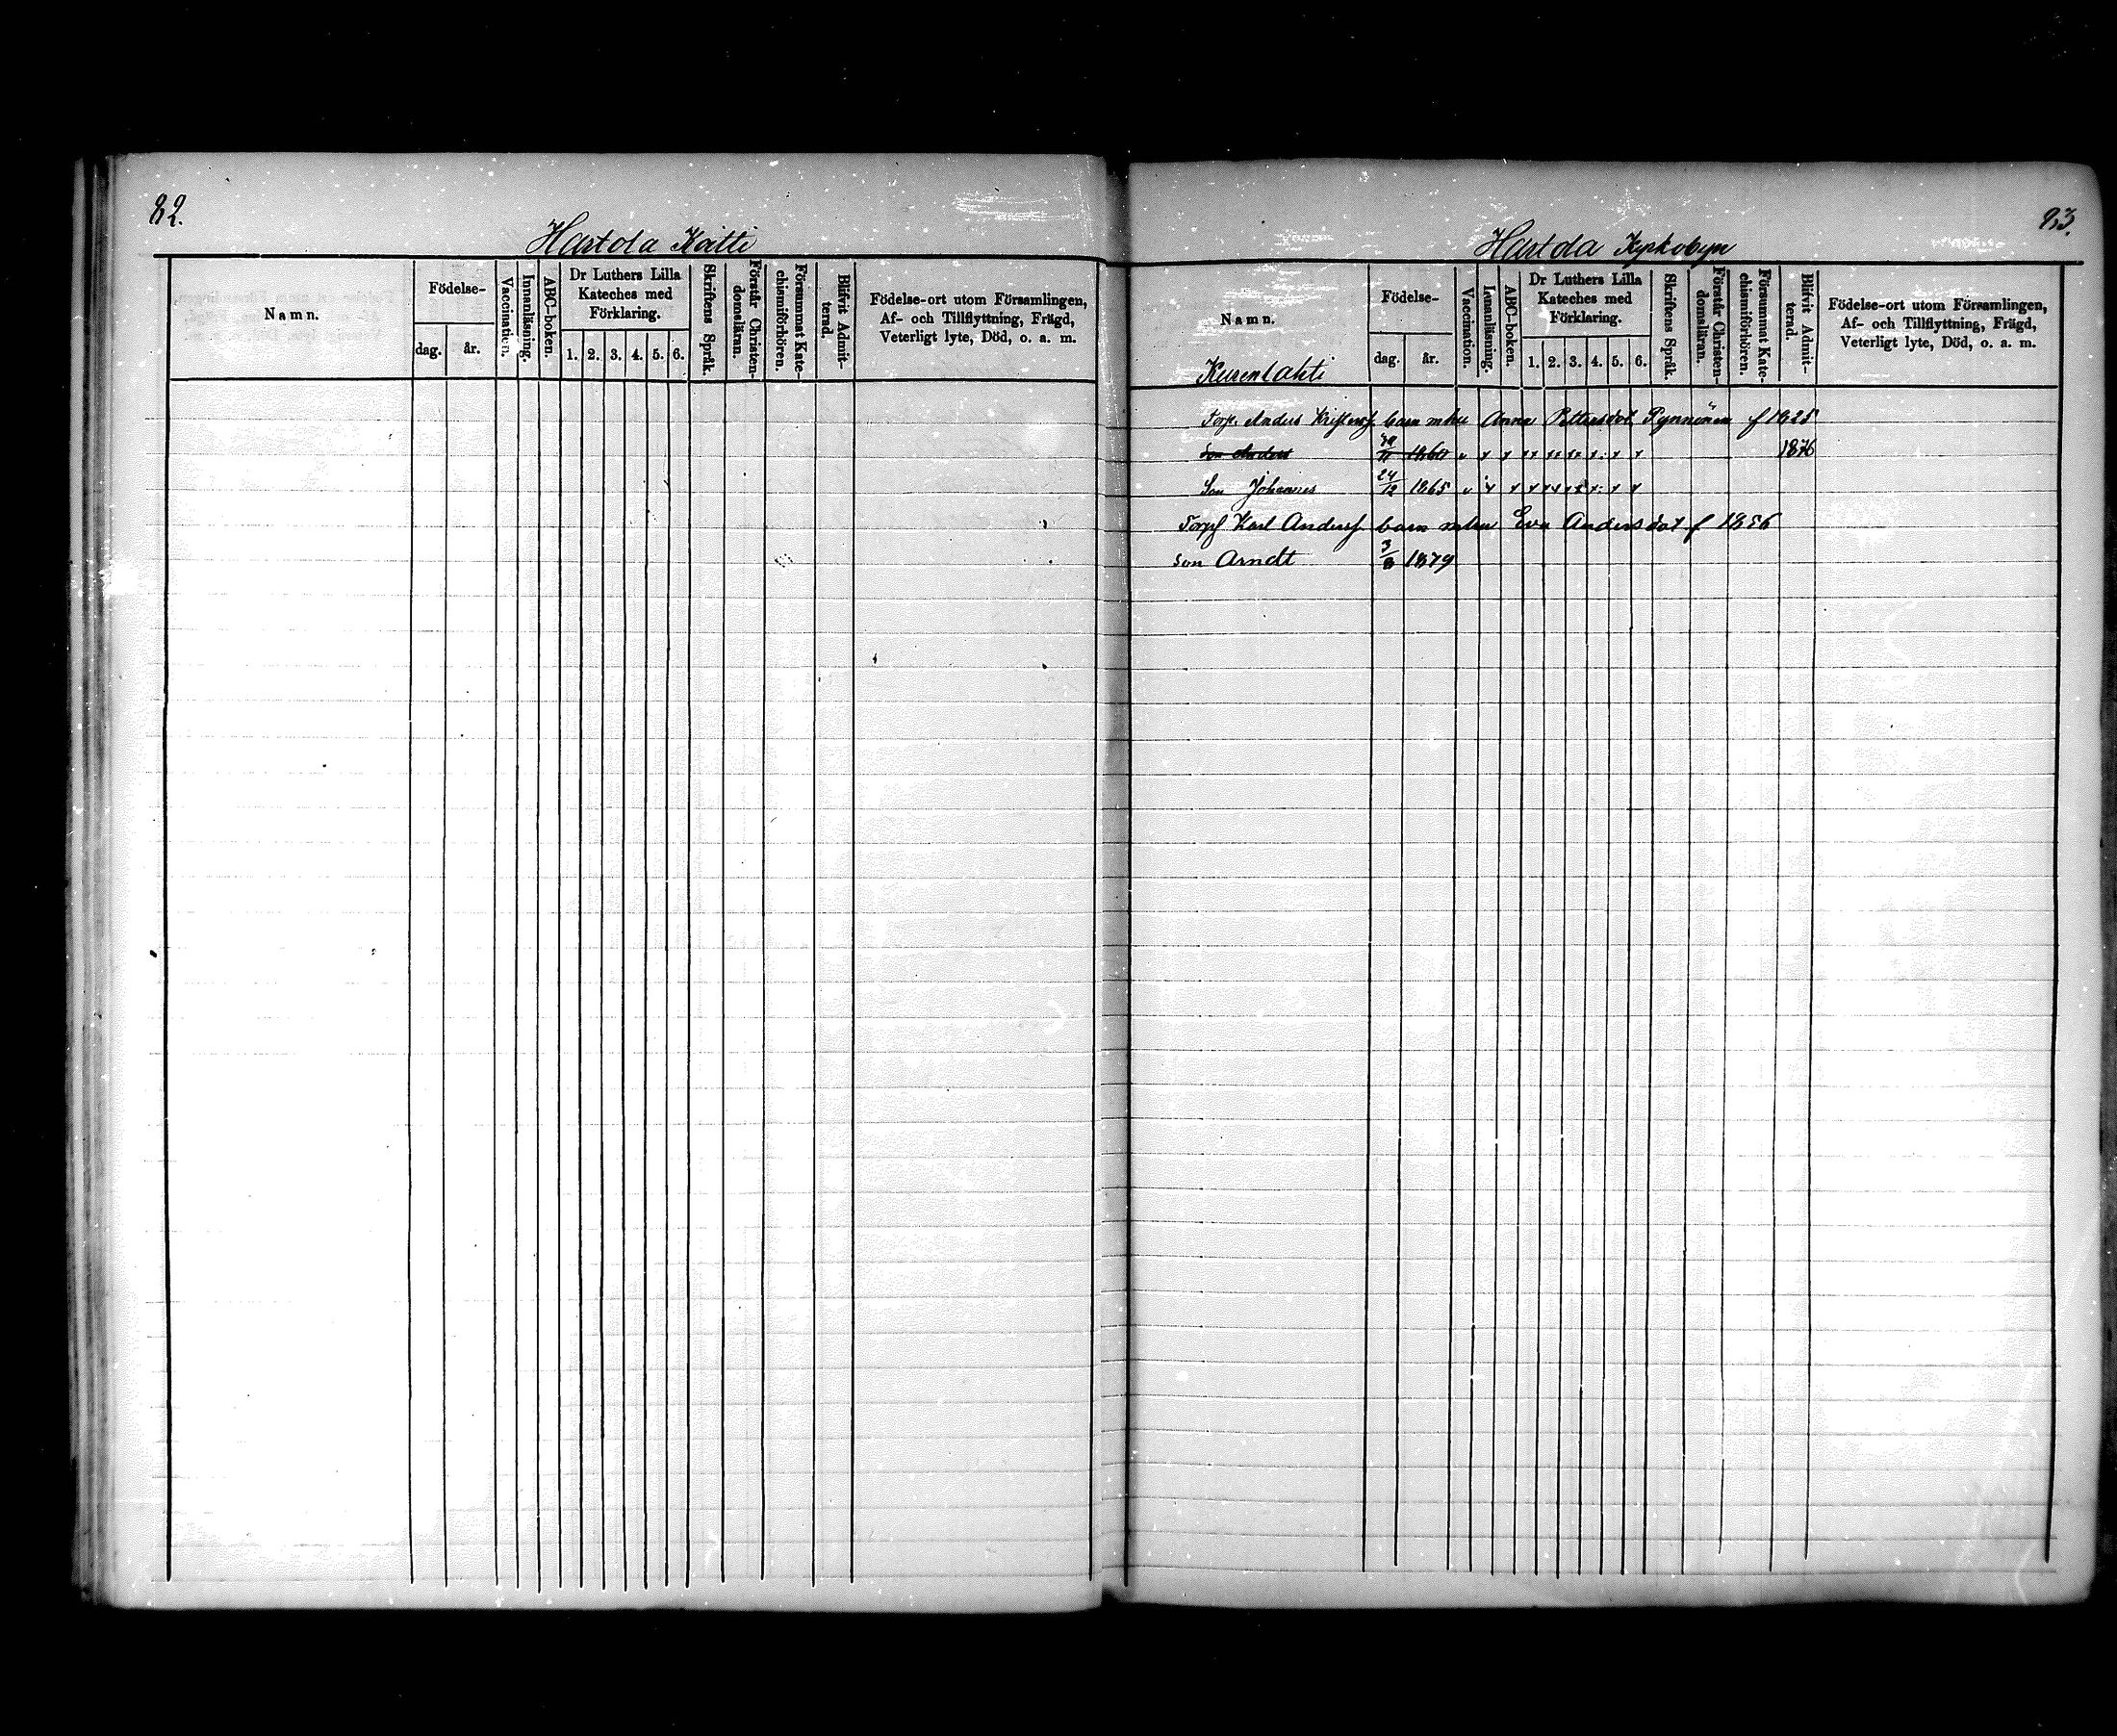 82.
Hartola Kaitti
Namn.
Födelse-
dag.
år.
Vaccination.
Innanläsning.
ABC-boken.
Dr Luthers Lilla
Kateches med
Förklaring.
1. 2. 3. 4. 5. 6.
Skriftens Språk.
Förstår Christen-
domsläran.
Försummat Kate-
chismiförhören.
Blifvit Admit-
terad.
Födelse-ort utom Församlingen,
Af- och Tillflyttning, Frägd,
Veterligt lyte, Död, o. a. m.
83.
Hartola Kyrkobyn
Namn.
Födelse-
dag.
år.
Vaccination.
Innanläsning.
ABC-boken.
Dr Luthers Lilla
Kateches med
Förklaring.
1. 2. 3. 4. 5. 6.
Skriftens Språk.
Förstår Christen-
domsläran.
Försummat Kate-
chismiförhören.
Blifvit Admit-
terad.
Födelse-ort utom Församlingen,
Af- och Tillflyttning, Frägd,
Veterligt lyte, Död, o. a. m.
Kurenlahti
Torp. Anders Kristerss barn mhu Anna Pettersdot Pynnönen f 1825
Son Anders 1876
Son Johannes 24/12 1865
Torp Karl Anderss barn mhu Eva Andersdot f 1856
Son Arndt 3/8 1879